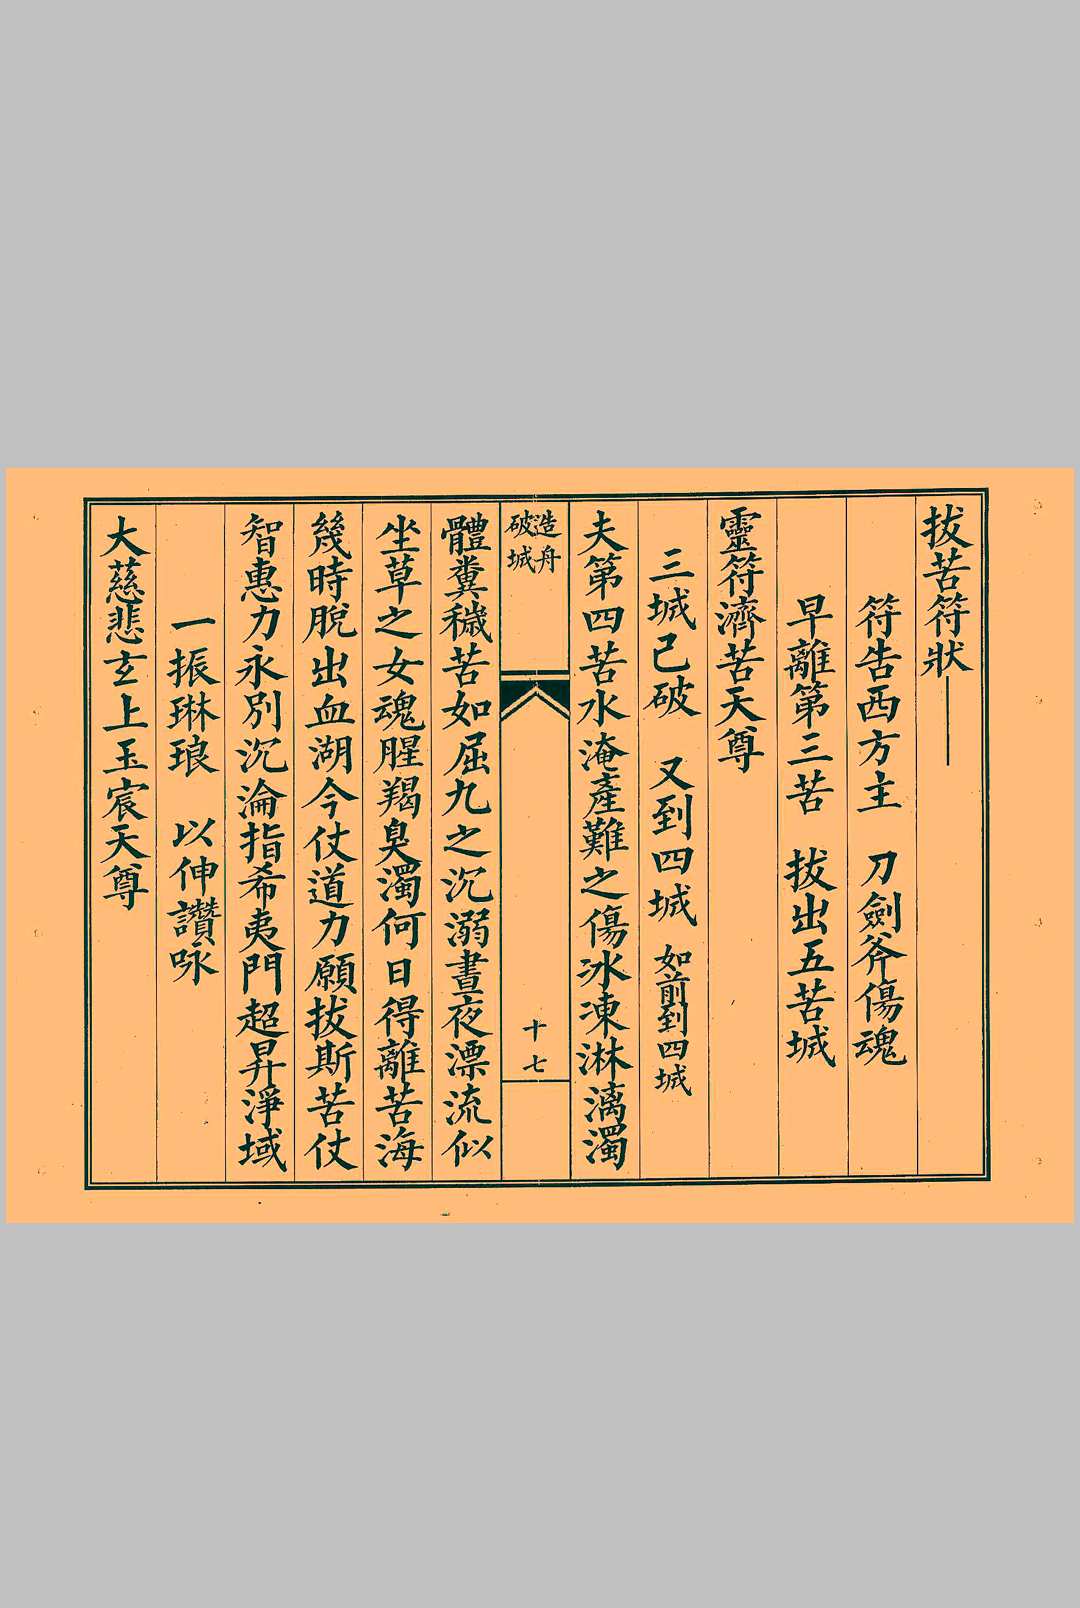 拔苦符狀
符告西方主　刀劍斧傷魂
早離第三苦　拔出五苦城
靈符濟苦天尊
三城已破　又到四城　如前到四城
夫第四苦水淹產難之傷冰凍淋漓濁
造舟
破城
十七
體糞穢苦如屈九之沉溺晝夜漂流似
坐草之女魂腥羯臭濁何日得離苦海
幾時脫出血湖今仗道力願拔斯苦仗
智惠力永別沉淪指希夷門超昇淨域
一振琳琅　以伸讚咏
大慈悲玄上玉宸天尊